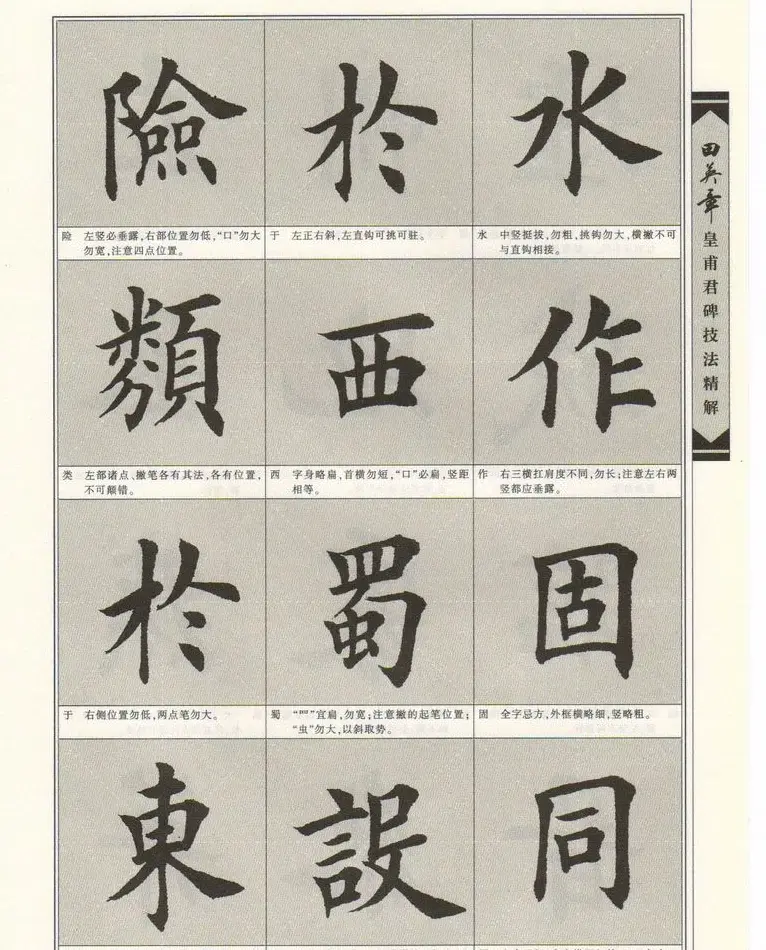 田英章皇甫君碑技法精解
水
水 中竖挺拔,勿粗,挑钩勿大,横撇不可
与直钩相接。
作
作 右三横扛肩度不同,勿长;注意左右两
竖都应垂露。
固
固 全字忌方,外框横略细,竖略粗。
同
於
于 左正右斜,左直钩可挑可驻。
西
西 字身略扁,首横勿短,“口”必扁,竖距
相等。
蜀
蜀 “罒”宜扁,勿宽;注意撇的起笔位置;
“虫”勿大,以斜取势。
設
險
险 左竖必垂露,右部位置勿低,“口”勿大
勿宽,注意四点位置。
類
类 左部诸点、撇笔各有其法,各有位置,
不可颠错。
於
于 右侧位置勿低,两点笔勿大。
東